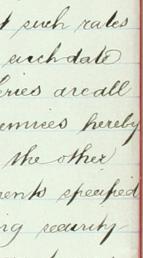 t such rates
such date
eries are all
emises hereby
the other
ments specified
ng security